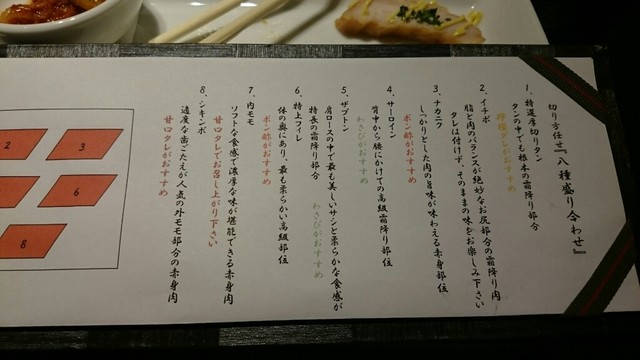 切り方任せ『八種盛り合わせ』
1、特選厚切りタン
タンの中でも根本の霜降り部分
檸檬ダレがおすすめ
2、イチボ
脂と肉のバランスが絶妙なお尻部分の霜降り肉
タレは付けず、そのままの味をお楽しみ下さい
3、ナカニク
しっかりとした肉の旨味が味わえる赤身部位
ポン酢がおすすめ
4、サーロイン
背中から腰にかけての高級霜降り部位
わさびがおすすめ
5、ザブトン
肩ロースの中で最も美しいサシと柔らかな食感が
特長の霜降り部分
わさびがおすすめ
6、特上フィレ
体の奥にあり、最も柔らかい高級部位
ポン酢がおすすめ
7、内モモ
ソフトな食感で濃厚な味が堪能できる赤身肉
甘口タレでお召し上がり下さい
8、シキンボ
適度な歯ごたえが人気の外モモ部分の赤身肉
甘口タレがおすすめ
2
3
6
8